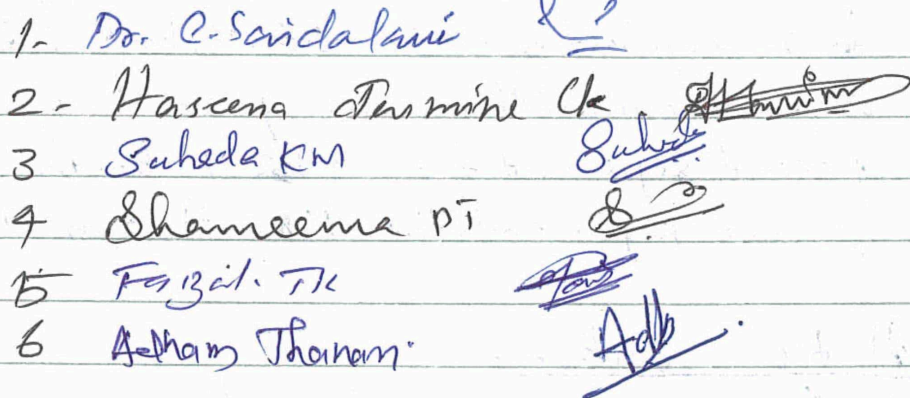 1- Dr. C. Saidalavi
2- Haseena Jasmine Ck
3 Suheda KM Suheda
4 Shameema PT
5 Faizal. TK
6 Adham Thanari. Adh